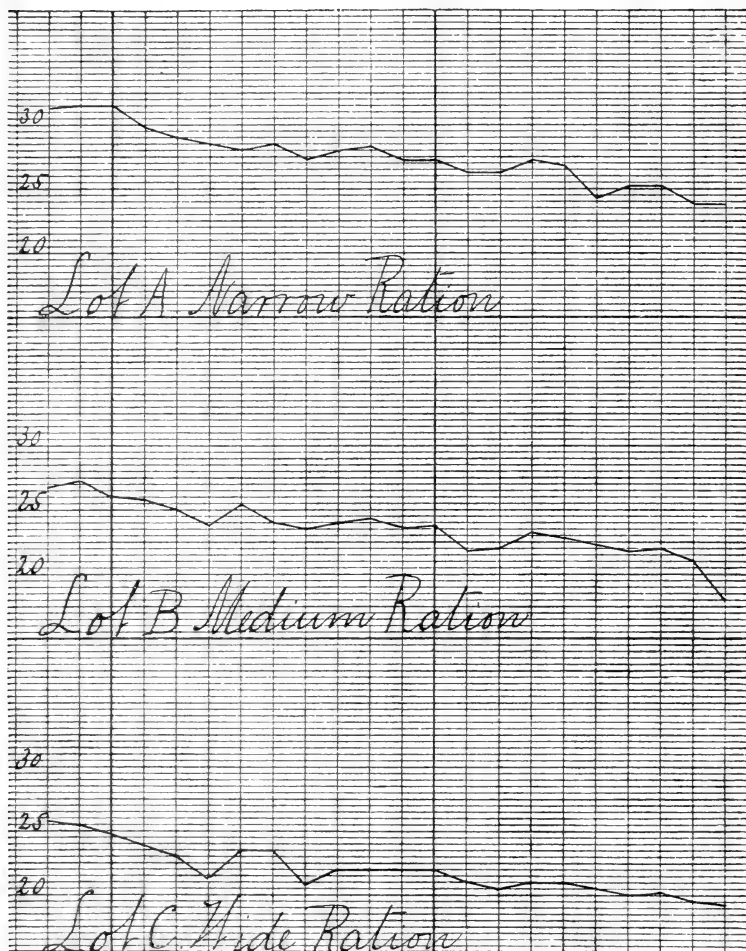 30
25
20
Lot A Narrow Ration
30
25
20
Lot B Medium Ration
30
25
20
Lot C Wide Ration